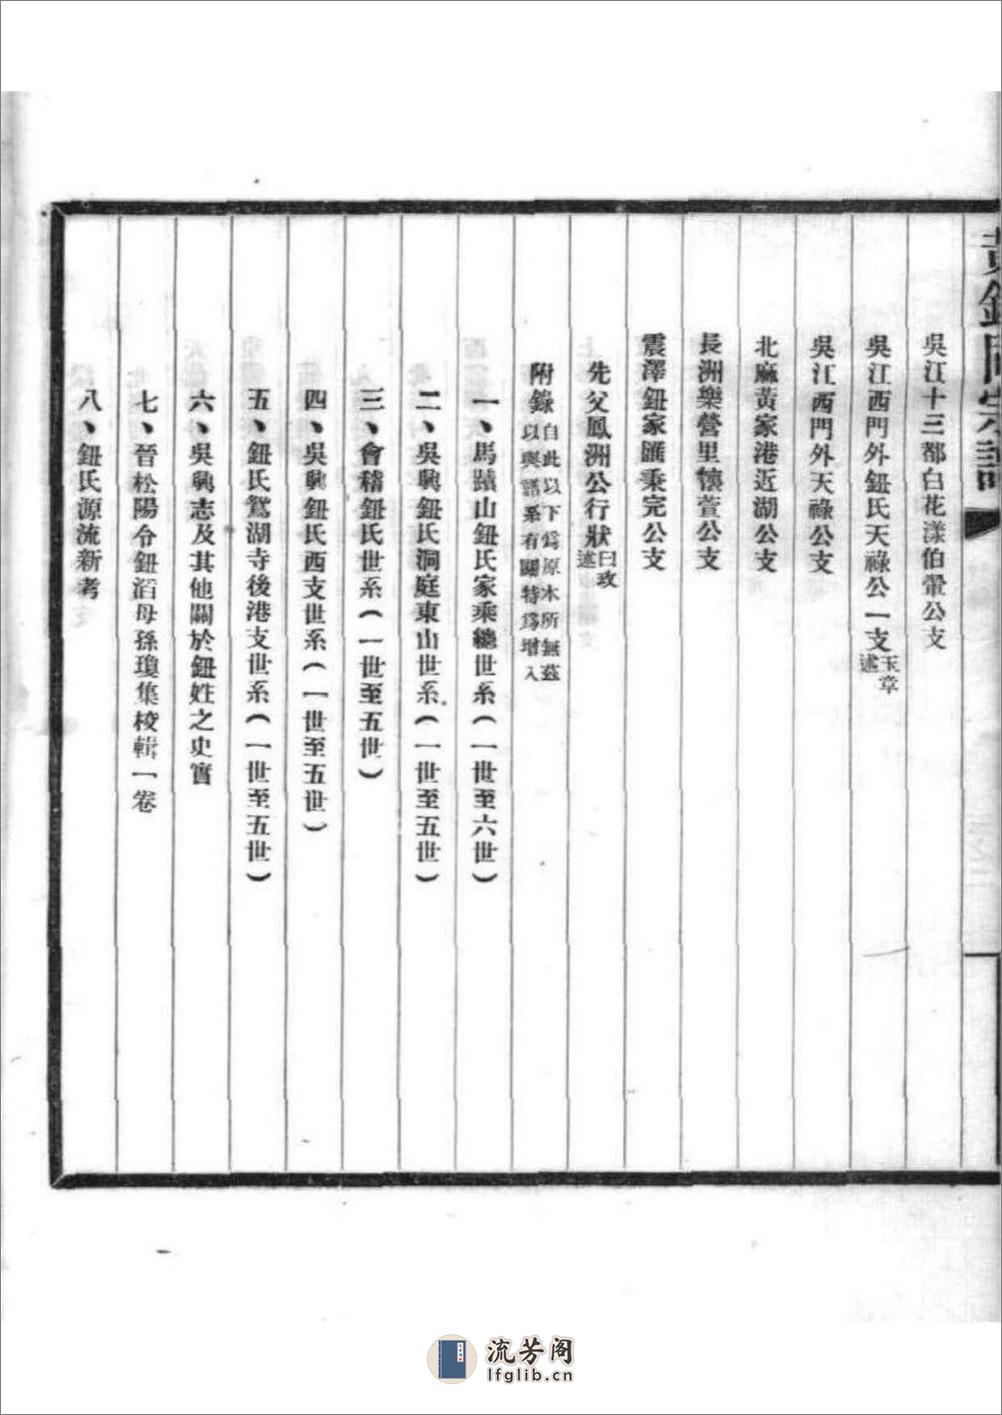 黃鈕同宗譜
吳江十三都白花漾伯翬公支
吳江西門外鈕氏天祿公一支玉章述
吳江西門外天祿公支
北麻黃家港近湖公支
長洲樂營里懷萱公支
震澤鈕家匯秉完公支
先父鳳洲公行狀曰玫述
附錄自此以下為原本所無茲以與譜系有關特為增入
一、馬蹟山鈕氏家乘總世系(一世至六世)
二、吳興鈕氏洞庭東山世系(一世至五世)
三、會稽鈕氏世系(一世至五世)
四、吳興鈕氏西支世系(一世至五世)
五、鈕氏鴛湖寺後港支世系(一世至五世)
六、吳興志及其他關於鈕姓之史實
七、晉松陽令鈕滔母孫瓊集校輯一卷
八、鈕氏源流新考
流芳阁
lfglib.cn